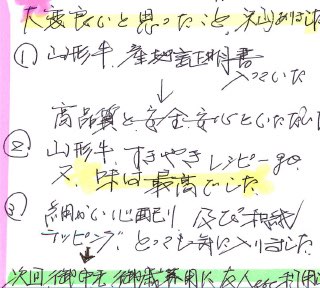 大変良いと思ったこと、沢山ありました
① 山形牛、産地証明書
入っていた
↓
高品質と、安全、安心といただい
② 山形牛、すきやきレシピー
又、味は最高でした
③ 細かい心配り 及び
ラッピング、とっても気に入りました
次回 御中元 御歳暮用に 友人